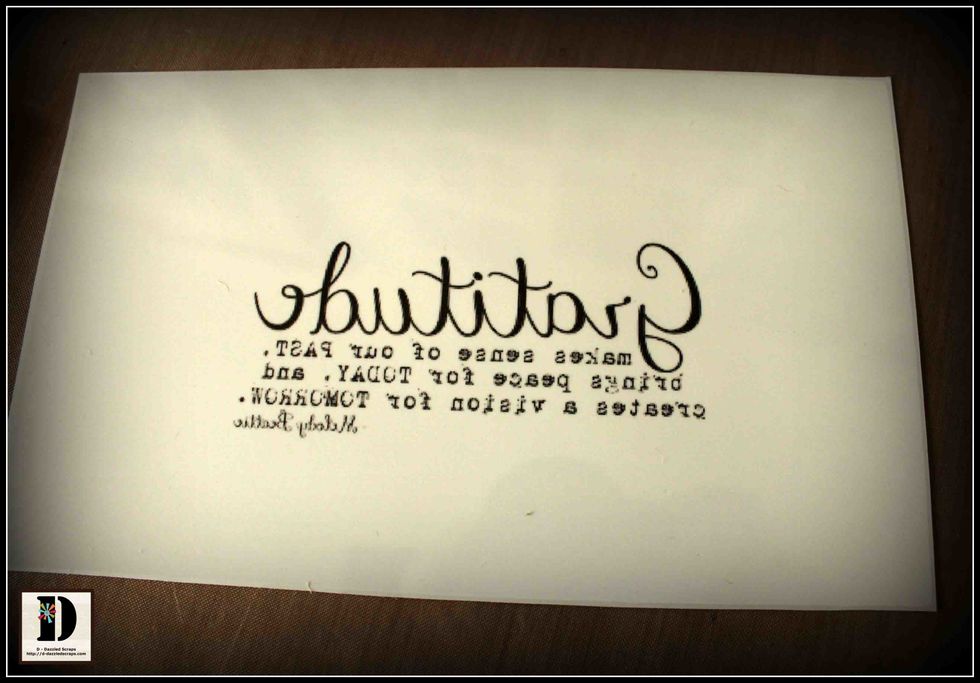 Gratitude
makes sense of our PAST,
brings peace for TODAY, and
creates a vision for TOMORROW.
Melody Beattie
D
D - Dazzled Scraps
http://d-dazzledscraps.com